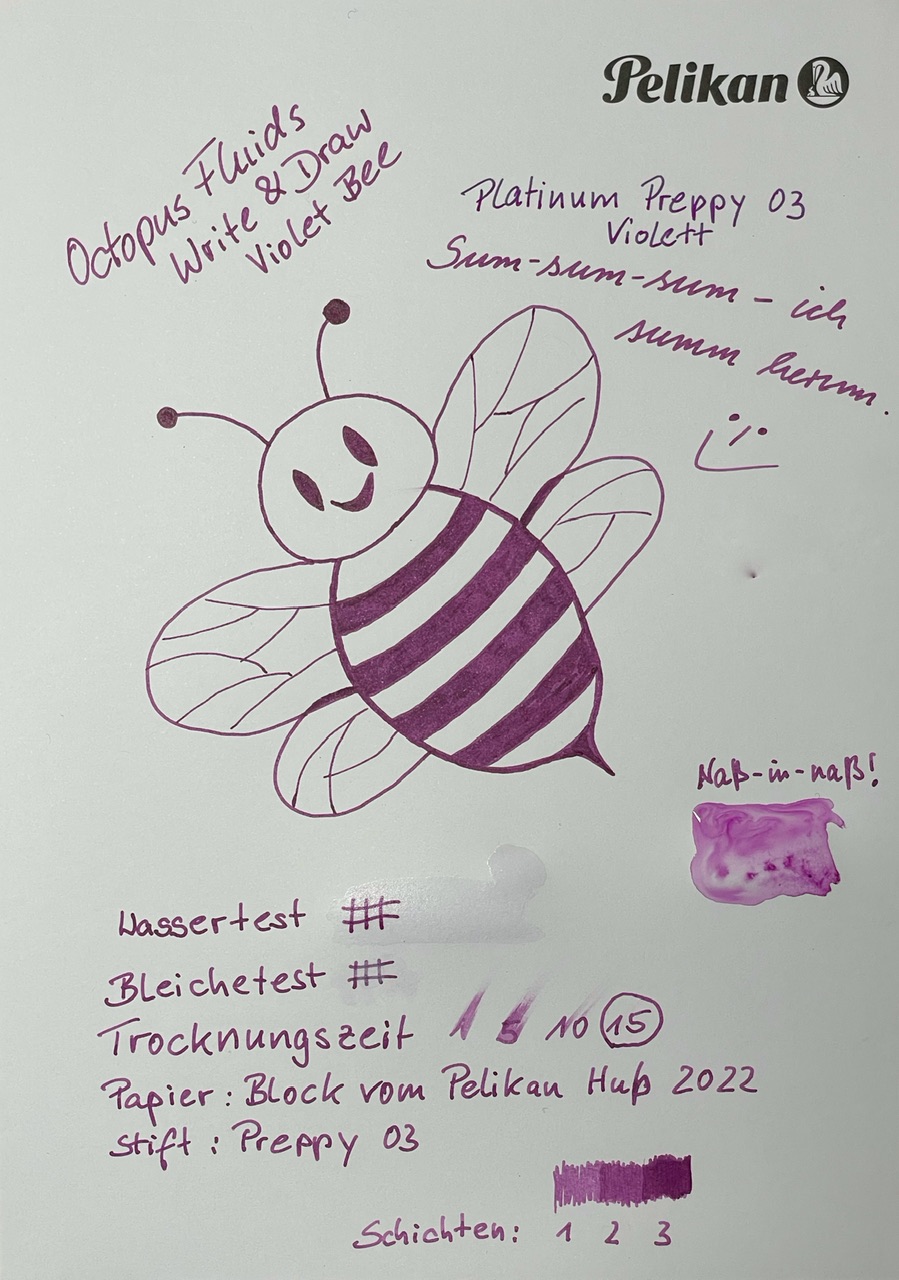 Pelikan
Octopus Fluids
Write & Draw
Violet Bee
Platinum Preppy 03
Violett
Sum-sum-sum – ich
summ herum.
Naß-in-naß!
Wassertest
Bleichetest
Trocknungszeit 1 5 10 15
Papier: Block vom Pelikan Hub 2022
Stift: Preppy 03
Schichten: 1 2 3